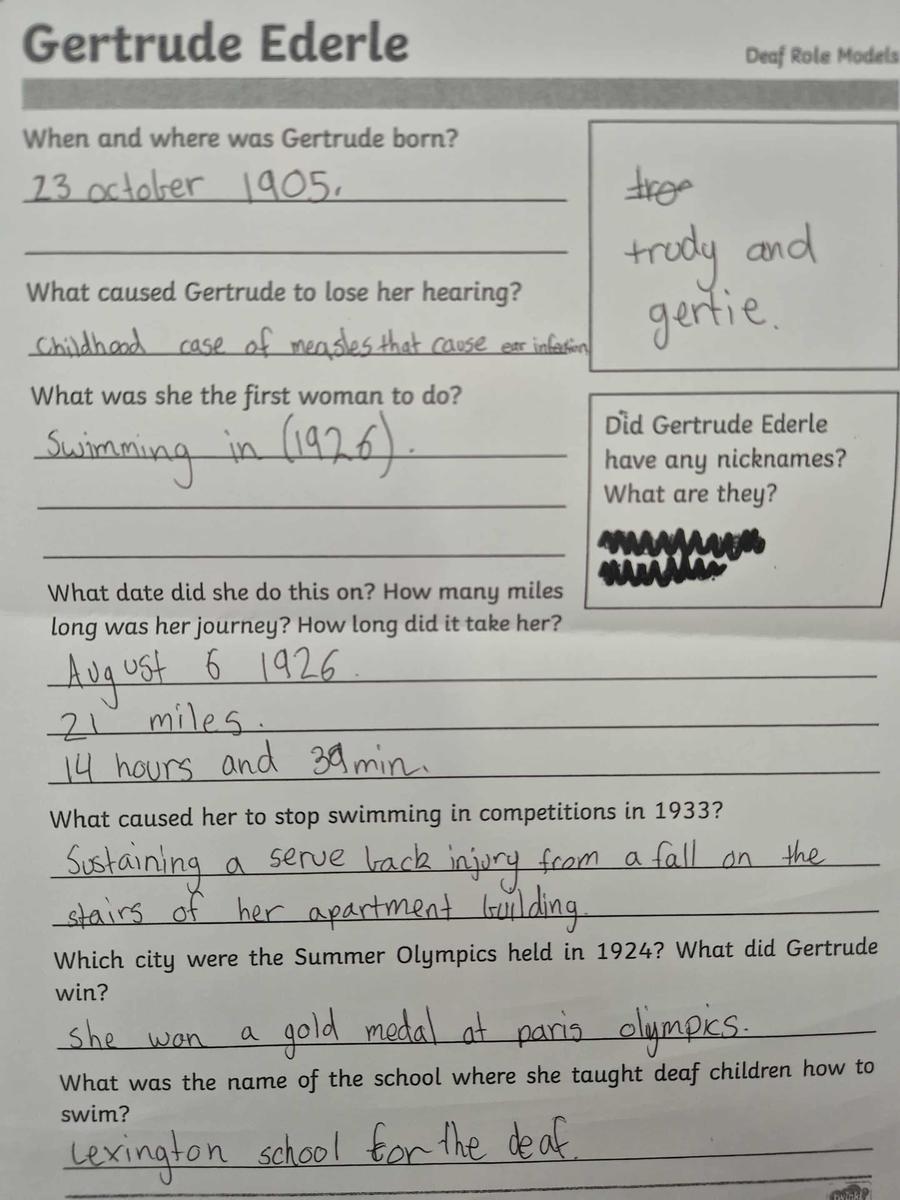 Gertrude Ederle
Deaf Role Models
When and where was Gertrude born?
23 october 1905.
What caused Gertrude to lose her hearing?
Childhood case of measles that cause ear infection
What was she the first woman to do?
Swimming in (1926).
trudy and
gertie.
Did Gertrude Ederle
have any nicknames?
What are they?
What date did she do this on? How many miles
long was her journey? How long did it take her?
August 6 1926.
21 miles.
14 hours and 39 min.
What caused her to stop swimming in competitions in 1933?
Sustaining a serve back injury from a fall on the
stairs of her apartment building.
Which city were the Summer Olympics held in 1924? What did Gertrude
win?
she won a gold medal at paris olympics.
What was the name of the school where she taught deaf children how to
swim?
Lexington school for the deaf.
twinkl